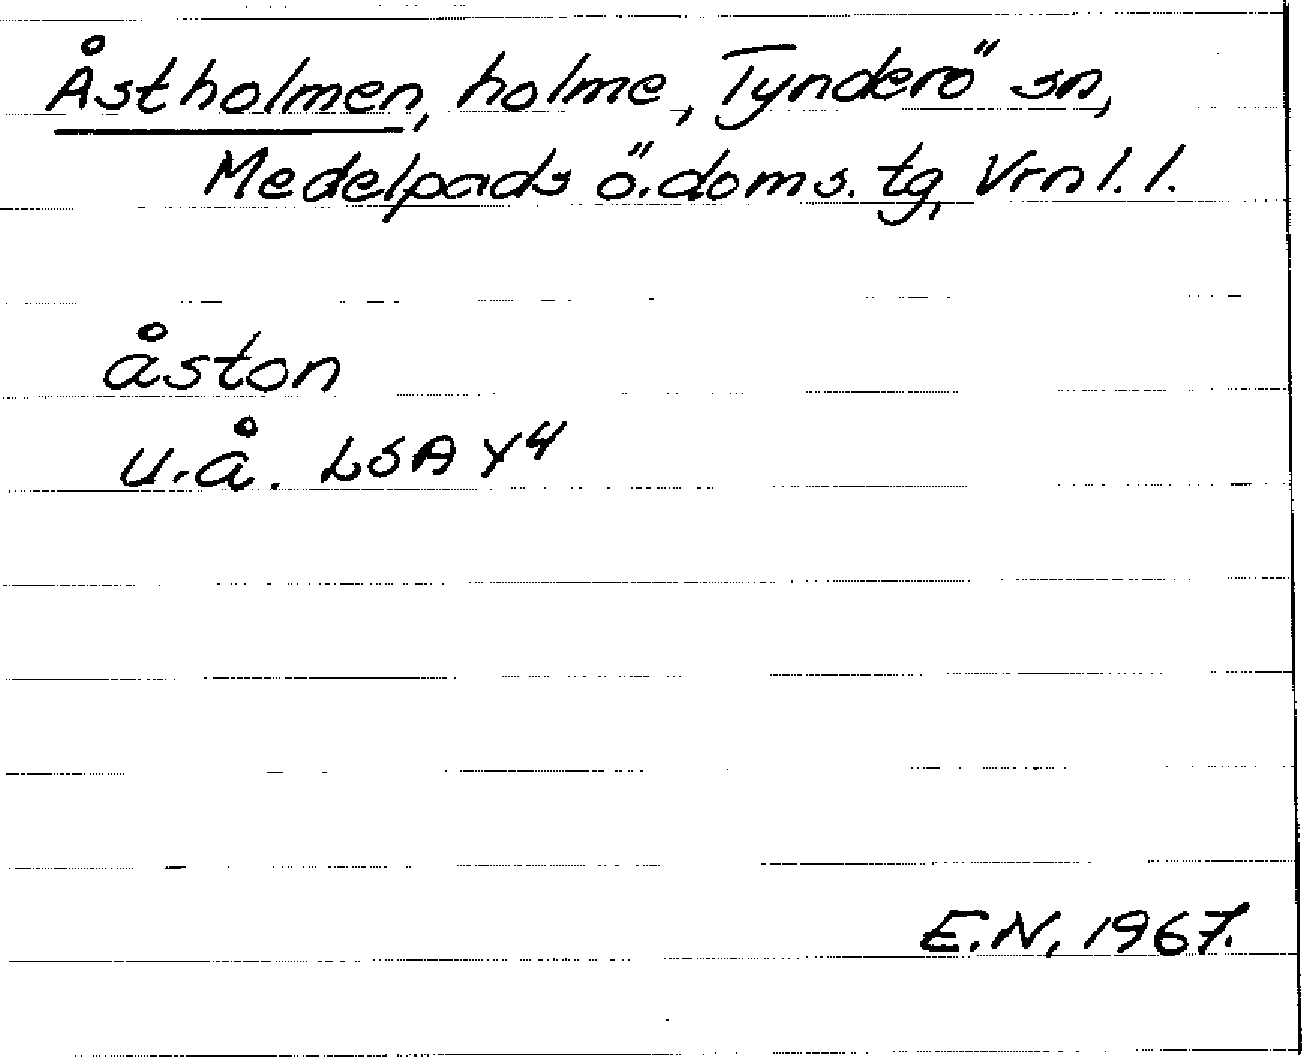 Åstholmen, holme, Tynderö sn,
Medelpads ö. doms. tg, Vrnl. l.
åston
u.å. LSA Y4
E.N, 1967.